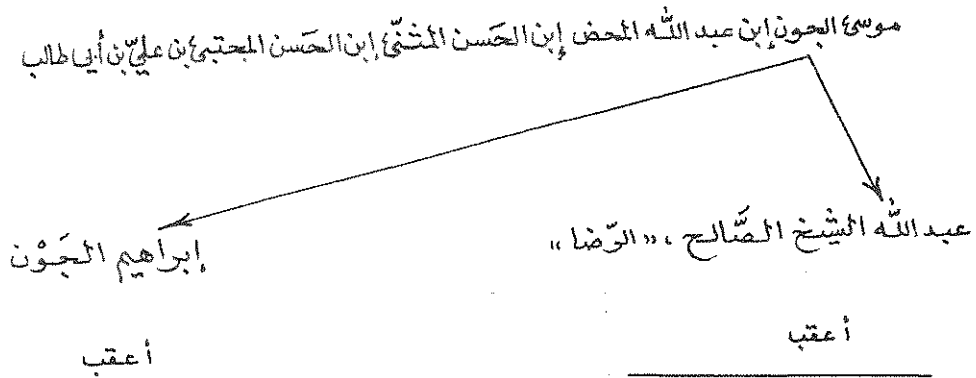 موسى الجون إبن عبد اللّه المحض إبن الحَسن المثنّى إبن الحَسن المجتبى بن عليّ بن أبي طالب
عبد اللّه الشيخ الصَّالح ، "الرّضا"
إبراهيم الجَوْن
أعقب
أعقب